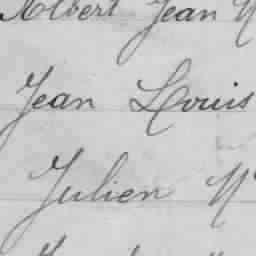 Albert Jean
Jean Louis
Julien